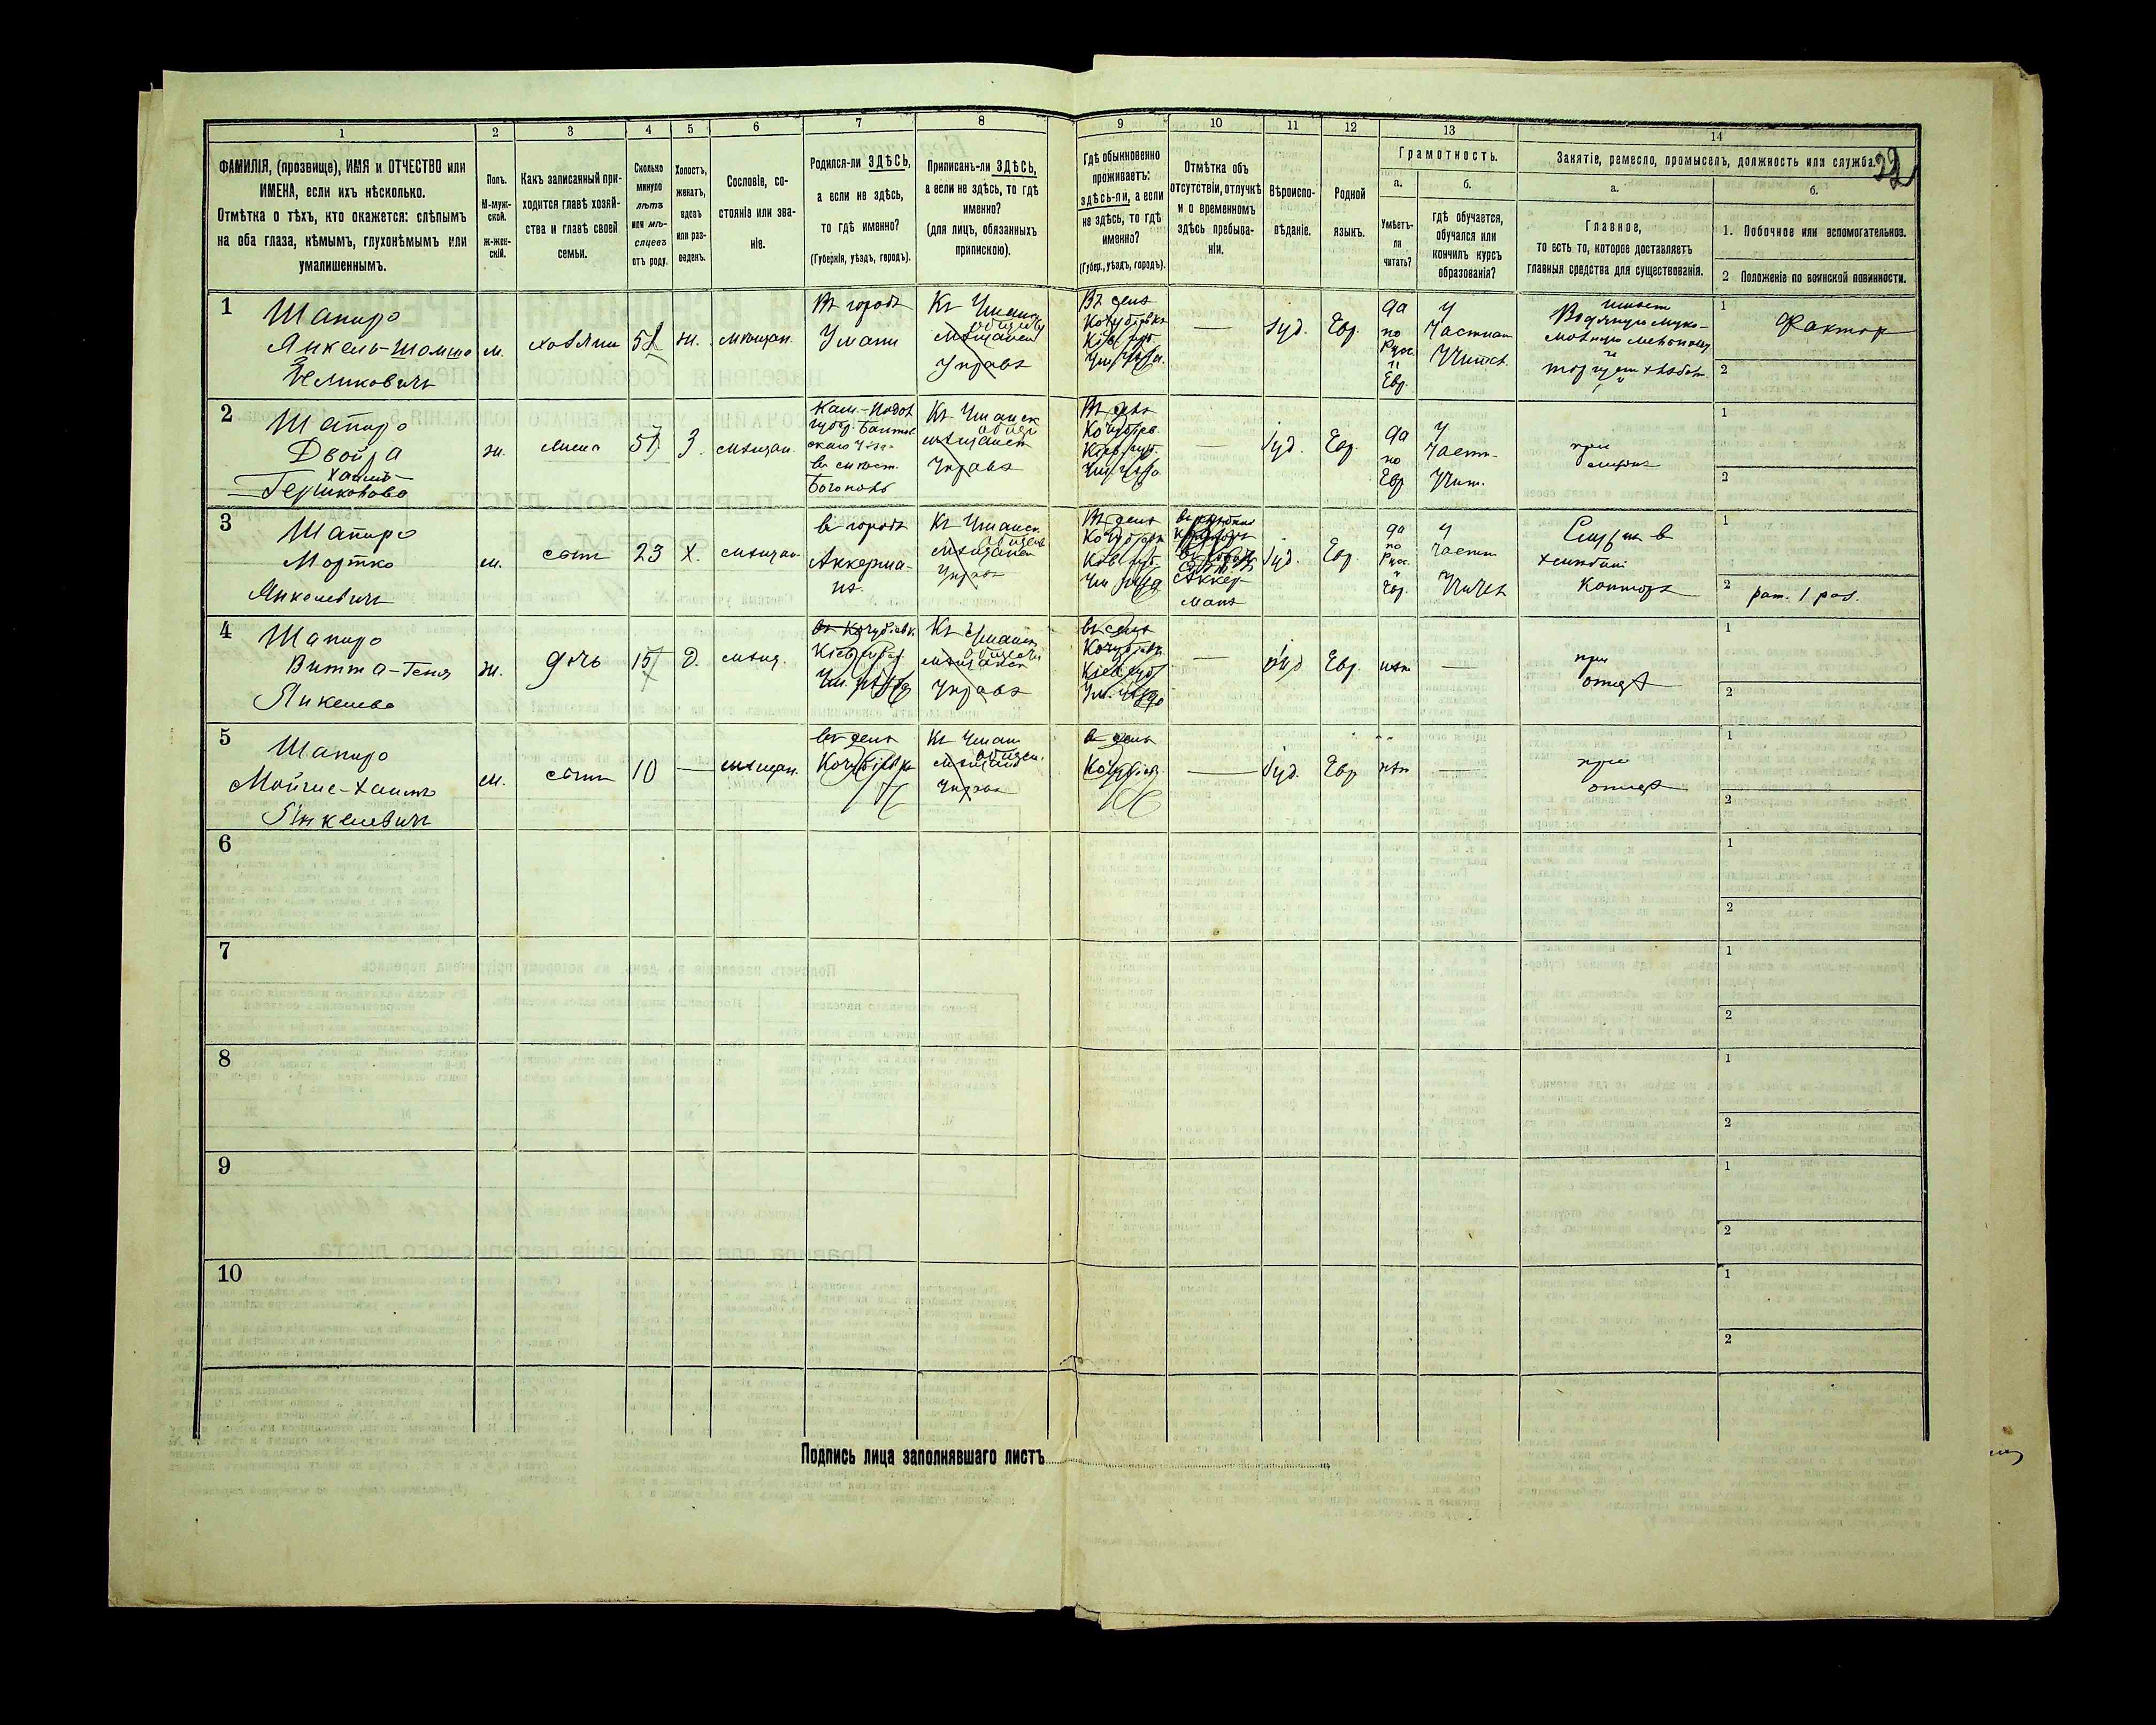 1 2 3 4 5 6 7 8 9 10 11 12 13 14
22
ФАМИЛІЯ, (прозвище), ИМЯ и ОТЧЕСТВО или
ИМЕНА, если ихъ нѣсколько.
Отмѣтка о тѣхъ, кто окажется: слѣпымъ
на оба глаза, нѣмымъ, глухонѣмымъ или
умалишеннымъ.
Полъ.
М-муж-
ской.
ж-жен-
скій.
Какъ записанный при-
ходится главѣ хозяй-
ства и главѣ своей
семьи.
Сколько
минуло
лѣтъ
или мѣ-
сяцевъ
отъ роду.
Холостъ,
женатъ,
вдовъ
или раз-
веденъ.
Сословіе, со-
стояніе или зва-
ніе.
Родился-ли ЗДѢСЬ,
а если не здѣсь,
то гдѣ именно?
(Губернія, уѣздъ, городъ).
Приписанъ-ли ЗДѢСЬ,
а если не здѣсь, то гдѣ
именно?
(для лицъ, обязанныхъ
припискою).
Гдѣ обыкновенно
проживаетъ:
здѣсь-ли, а если
не здѣсь, то гдѣ
именно?
(Губер., уѣздъ, городъ).
Отмѣтка объ
отсутствіи, отлучкѣ
и о временномъ
здѣсь пребыва-
ніи.
Вѣроиспо-
вѣданіе.
Родной
языкъ.
Грамотность.
а.
Умѣетъ-
ли
читать?
б.
гдѣ обучается,
обучался или
кончилъ курсъ
образованія?
Занятіе, ремесло, промыселъ, должность или служба.
а.
Главное,
то есть то, которое доставляетъ
главныя средства для существованія.
б.
1. Побочное или вспомогательное.
2 Положеніе по воинской повинности.
1
Шапиро
Янкель-Шомшо
м.
хозяин
ж.
мѣщан.
Въ городѣ
Умани
Къ Уманск
обществу
мѣщанск
Управѣ
Въ селѣ
Кочубіевкѣ
Іуд.
Евр.
да
по
Рус.
и
Евр.
у
Частнаго
Учител.
имѣет
Водяную муко-
мольную мельницу
и
торгует хлѣбом
1
Фактор
2
2
Шапиро
Двойра
Хаимъ-
Гершковова
ж.
жена
З.
мѣщан.
Кам.-Подол
губер. Балтск
Къ Уманск
мѣщанск
Управѣ
Въ селѣ
Кочубіев.
Іуд.
Евр.
да
по
Евр
у
Частн.
Учит.
при
мужѣ
1
2
3
Шапиро
Мортко
Янкелевичъ
м.
сынъ
23
Х.
мѣщан
въ городѣ
Аккерма-
нѣ.
Къ Уманск.
мѣщанск
Управѣ
Въ селѣ
Аккер-
манѣ
Іуд.
Евр.
да
по
Рус.
и
Евр.
у
Частн
Учител
Служит в
хлѣбной
Конторѣ
1
2 рат. 1 раз.
4
Шапиро
Витта-Геня
Янкелева
ж.
дочь
15
Д.
мѣщ.
въ Кочубіевк.
Къ Уманск
мѣщанск
Управѣ
въ селѣ
Іуд
Евр.
нѣт
при
отцѣ
1
2
5
Шапиро
Мойше-Хаимъ
Янкелевичъ
м.
сынъ
10
мѣщан.
въ селѣ
Кочубіевкѣ
Къ Уман
Управѣ
в селѣ
Іуд.
Евр
нѣт
при
отцѣ
1
2
6
1
2
7
1
2
8
1
2
9
1
2
10
1
2
Подпись лица заполнявшаго листъ